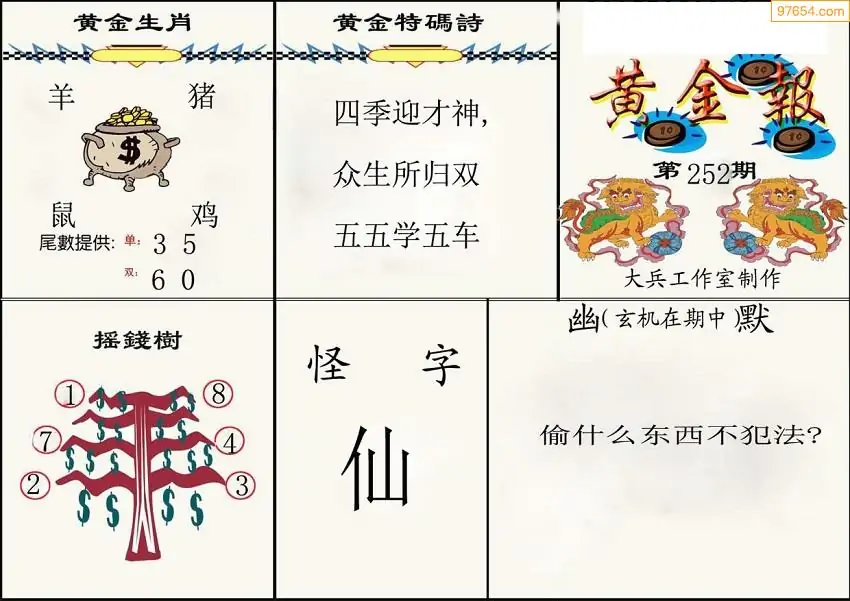 97654.com
黄金生肖
羊 猪
$
鼠 鸡
尾數提供: 单: 3 5
双: 6 0
黄金特碼詩
四季迎才神,
众生所归双
五五学五车
黄金報
10
10
10
第252期
大兵工作室制作
摇錢樹
1 8
$ $ $ $
$ $ $ $
7 4
$ $ $ $ $
2 3
$ $ $ $
怪 字
仙
幽(玄机在期中)默
偷什么东西不犯法?